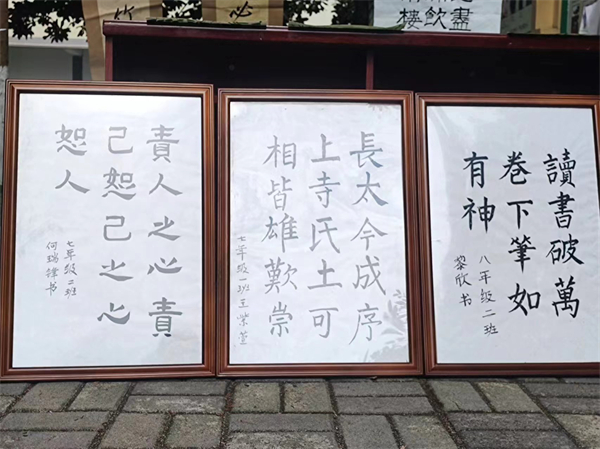 竹
必
樓飲盡
責人之心責
己恕己之心
恕人
七年级二班
何瑞锋书
長太今成序
上寺氏土可
相皆雄歎崇
七年级一班王紫萱
讀書破萬
卷下筆如
有神
八年级二班
黎欣书